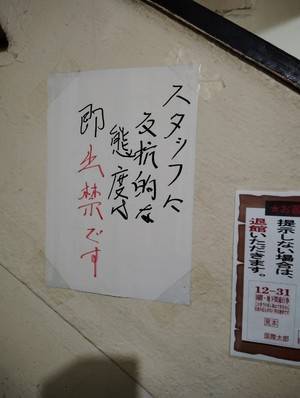 スタッフに
反抗的な
態度は
即出禁です
★お
提示しない場合は、
退館いただきます。
12-31
見本
国際太郎